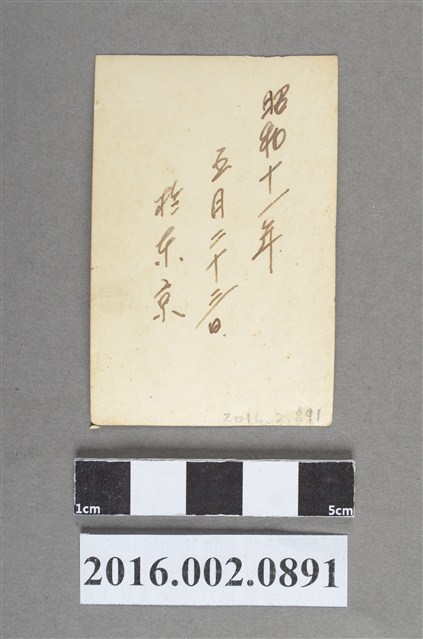 昭和十一年
五月二十三日
於東京
2016.2.891
1cm
5cm
2016.002.0891